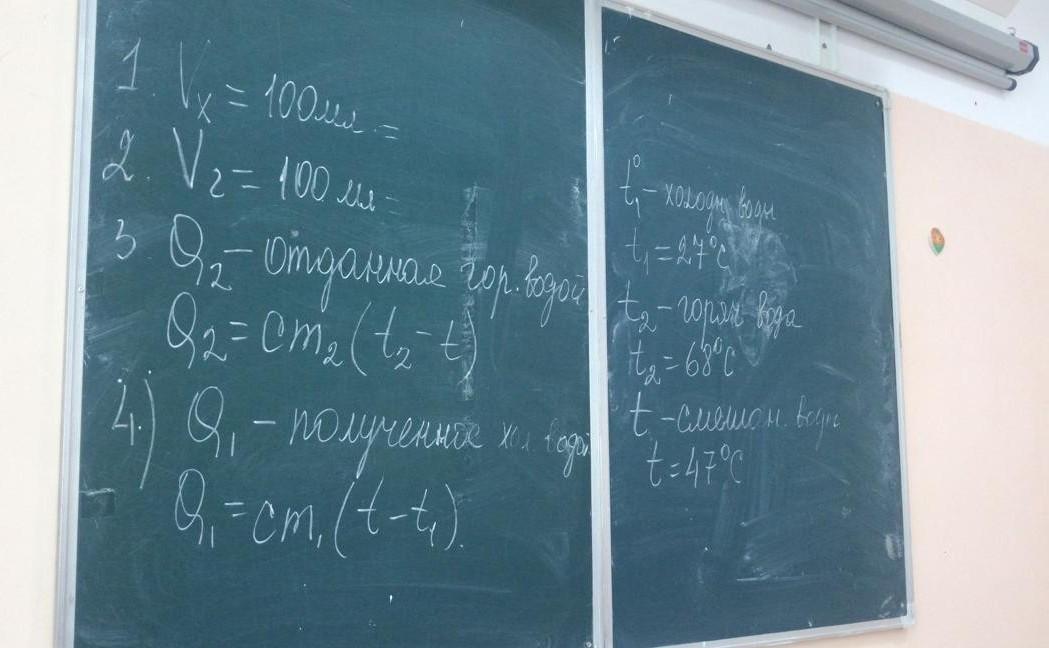 1. Vx = 100мл =
2. V2 = 100мл =
3 Q2 – отданная гор. водой
Q2 = cm2 (t2 – t)
4.) Q1 – полученное хол. водой
Q1 = cm1 (t – t1).
t1° – холодн воды
t1 = 27°C
t2 – горяч вода
t2 = 68°C
t – смешан. воды
t = 47°C